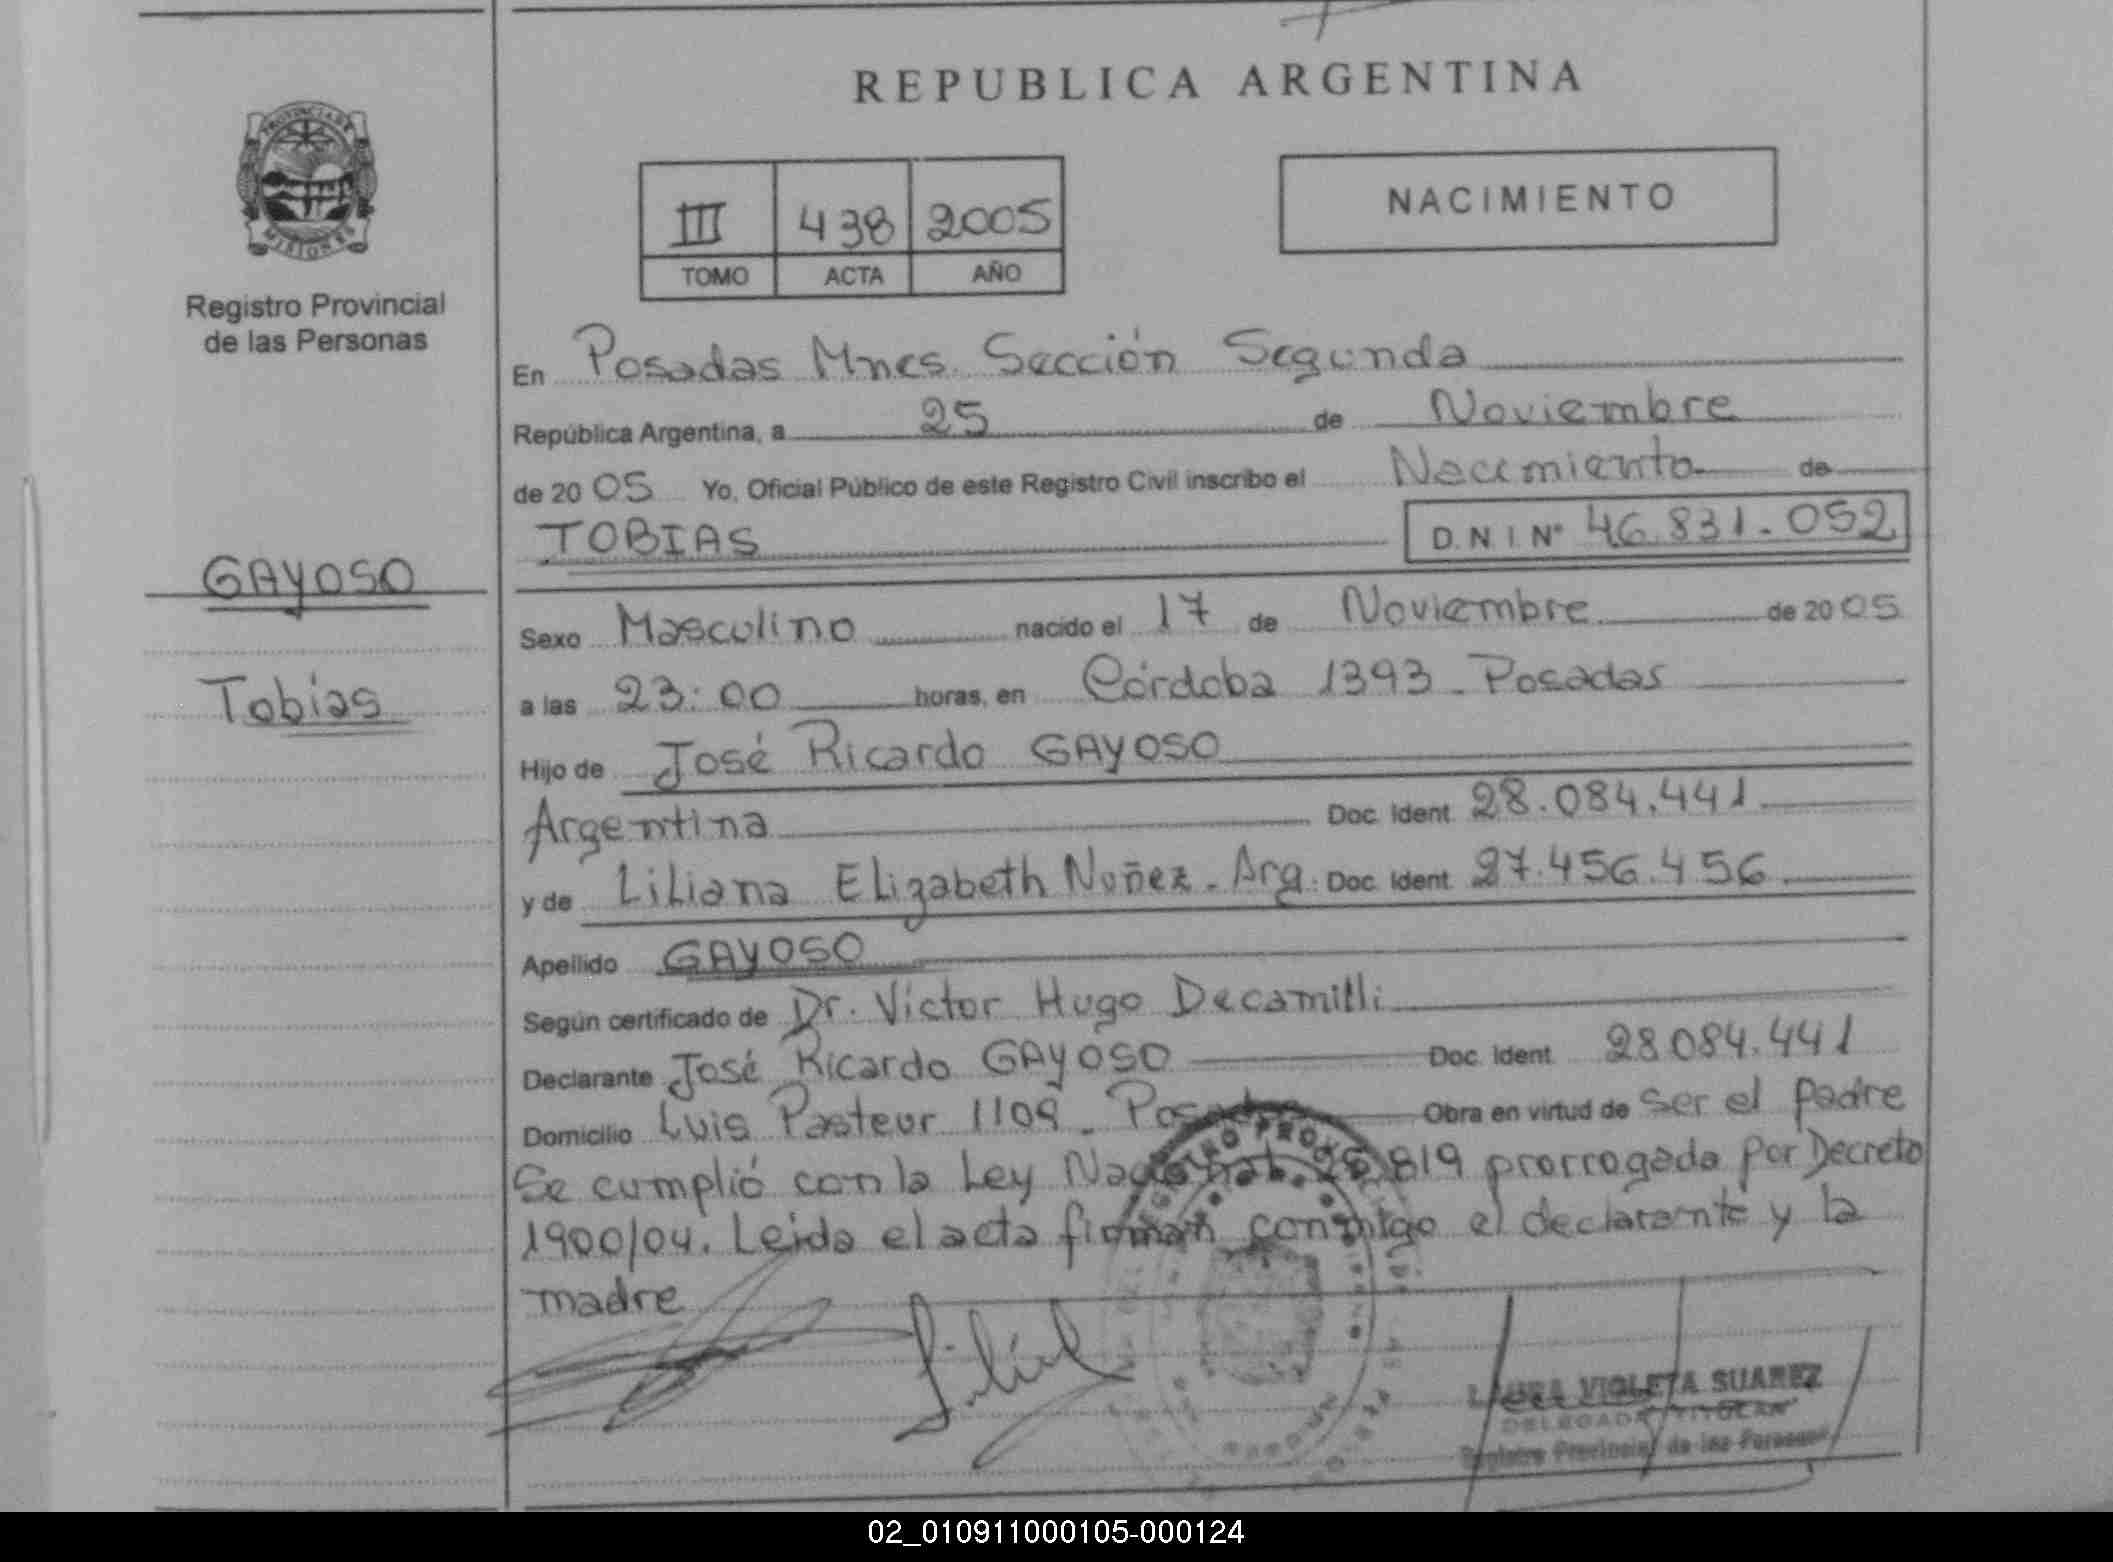 REPUBLICA ARGENTINA
PROVINCIA DE
MISIONES
Registro Provincial
de las Personas
III 438 2005
TOMO ACTA AÑO
NACIMIENTO
En Posadas Mnes. Sección Segunda
República Argentina, a 25 de Noviembre
de 20 05 Yo, Oficial Público de este Registro Civil inscribo el Nacimiento de
TOBIAS D.N.I. Nº 46.831.052
GAYOSO
Tobias
Sexo Masculino nacido el 17 de Noviembre de 20 05
a las 23:00 horas, en Córdoba 1393 - Posadas
Hijo de José Ricardo GAYOSO
Argentina Doc. Ident. 28.084.441
y de Liliana Elizabeth Nuñez - Arg. Doc. Ident. 27.456.456
Apellido GAYOSO
Según certificado de Dr. Victor Hugo Decamilli
Declarante José Ricardo GAYOSO Doc. Ident. 28084.441
Domicilio Luis Pasteur 1109 - Posadas Obra en virtud de ser el padre
Se cumplió con la Ley Nacional 25.819 prorrogada por Decreto
1900/04. Leida el acta firman conmigo el declarante y la
madre
LAURA VIOLETA SUAREZ
DELEGADA TITULAR
Registro Provincial de las Personas
02_010911000105-000124